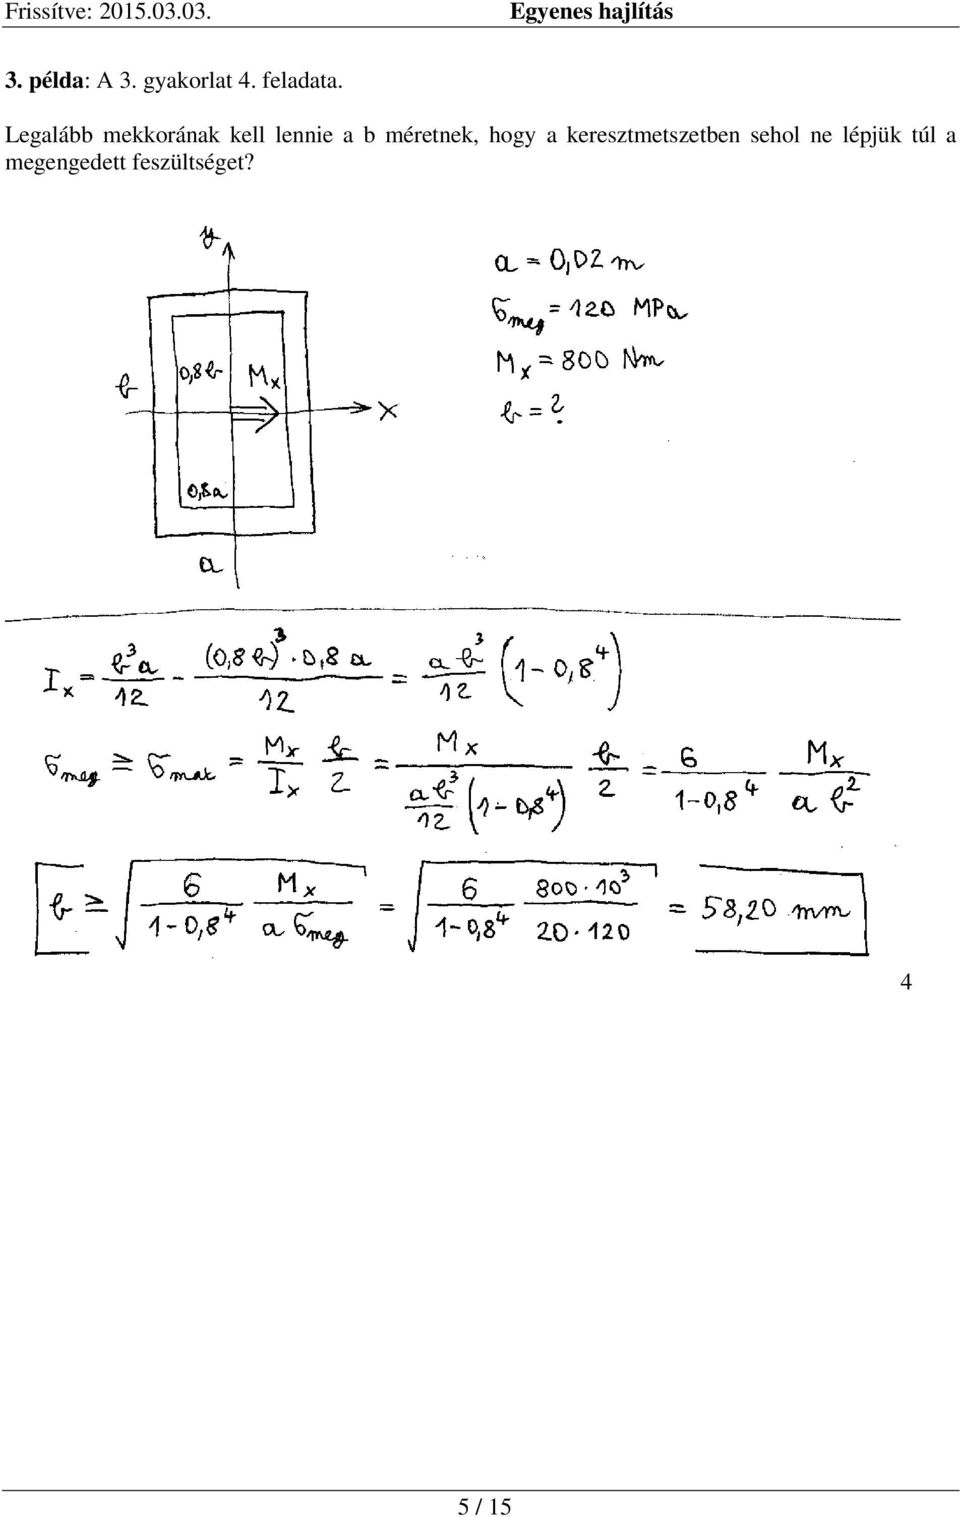 Frissítve: 2015.03.03. Egyenes hajlítás
3. példa: A 3. gyakorlat 4. feladata.
Legalább mekkorának kell lennie a b méretnek, hogy a keresztmetszetben sehol ne lépjük túl a
megengedett feszültséget?
y
a = 0,02 m
σmeg = 120 MPa
0,8b Mx
Mx = 800 Nm
b
x
b = ?
0,8a
a
Ix = b³a/12 - (0,8b)³·0,8a/12 = ab³/12 (1-0,8⁴)
σmeg ≥ σmax = Mx/Ix b/2 = Mx/(ab³/12 (1-0,8⁴)) b/2 = 6/(1-0,8⁴) Mx/(ab²)
b ≥ √(6/(1-0,8⁴) Mx/(a σmeg)) = √(6/(1-0,8⁴) 800·10³/(20·120)) = 58,20 mm
4
5 / 15